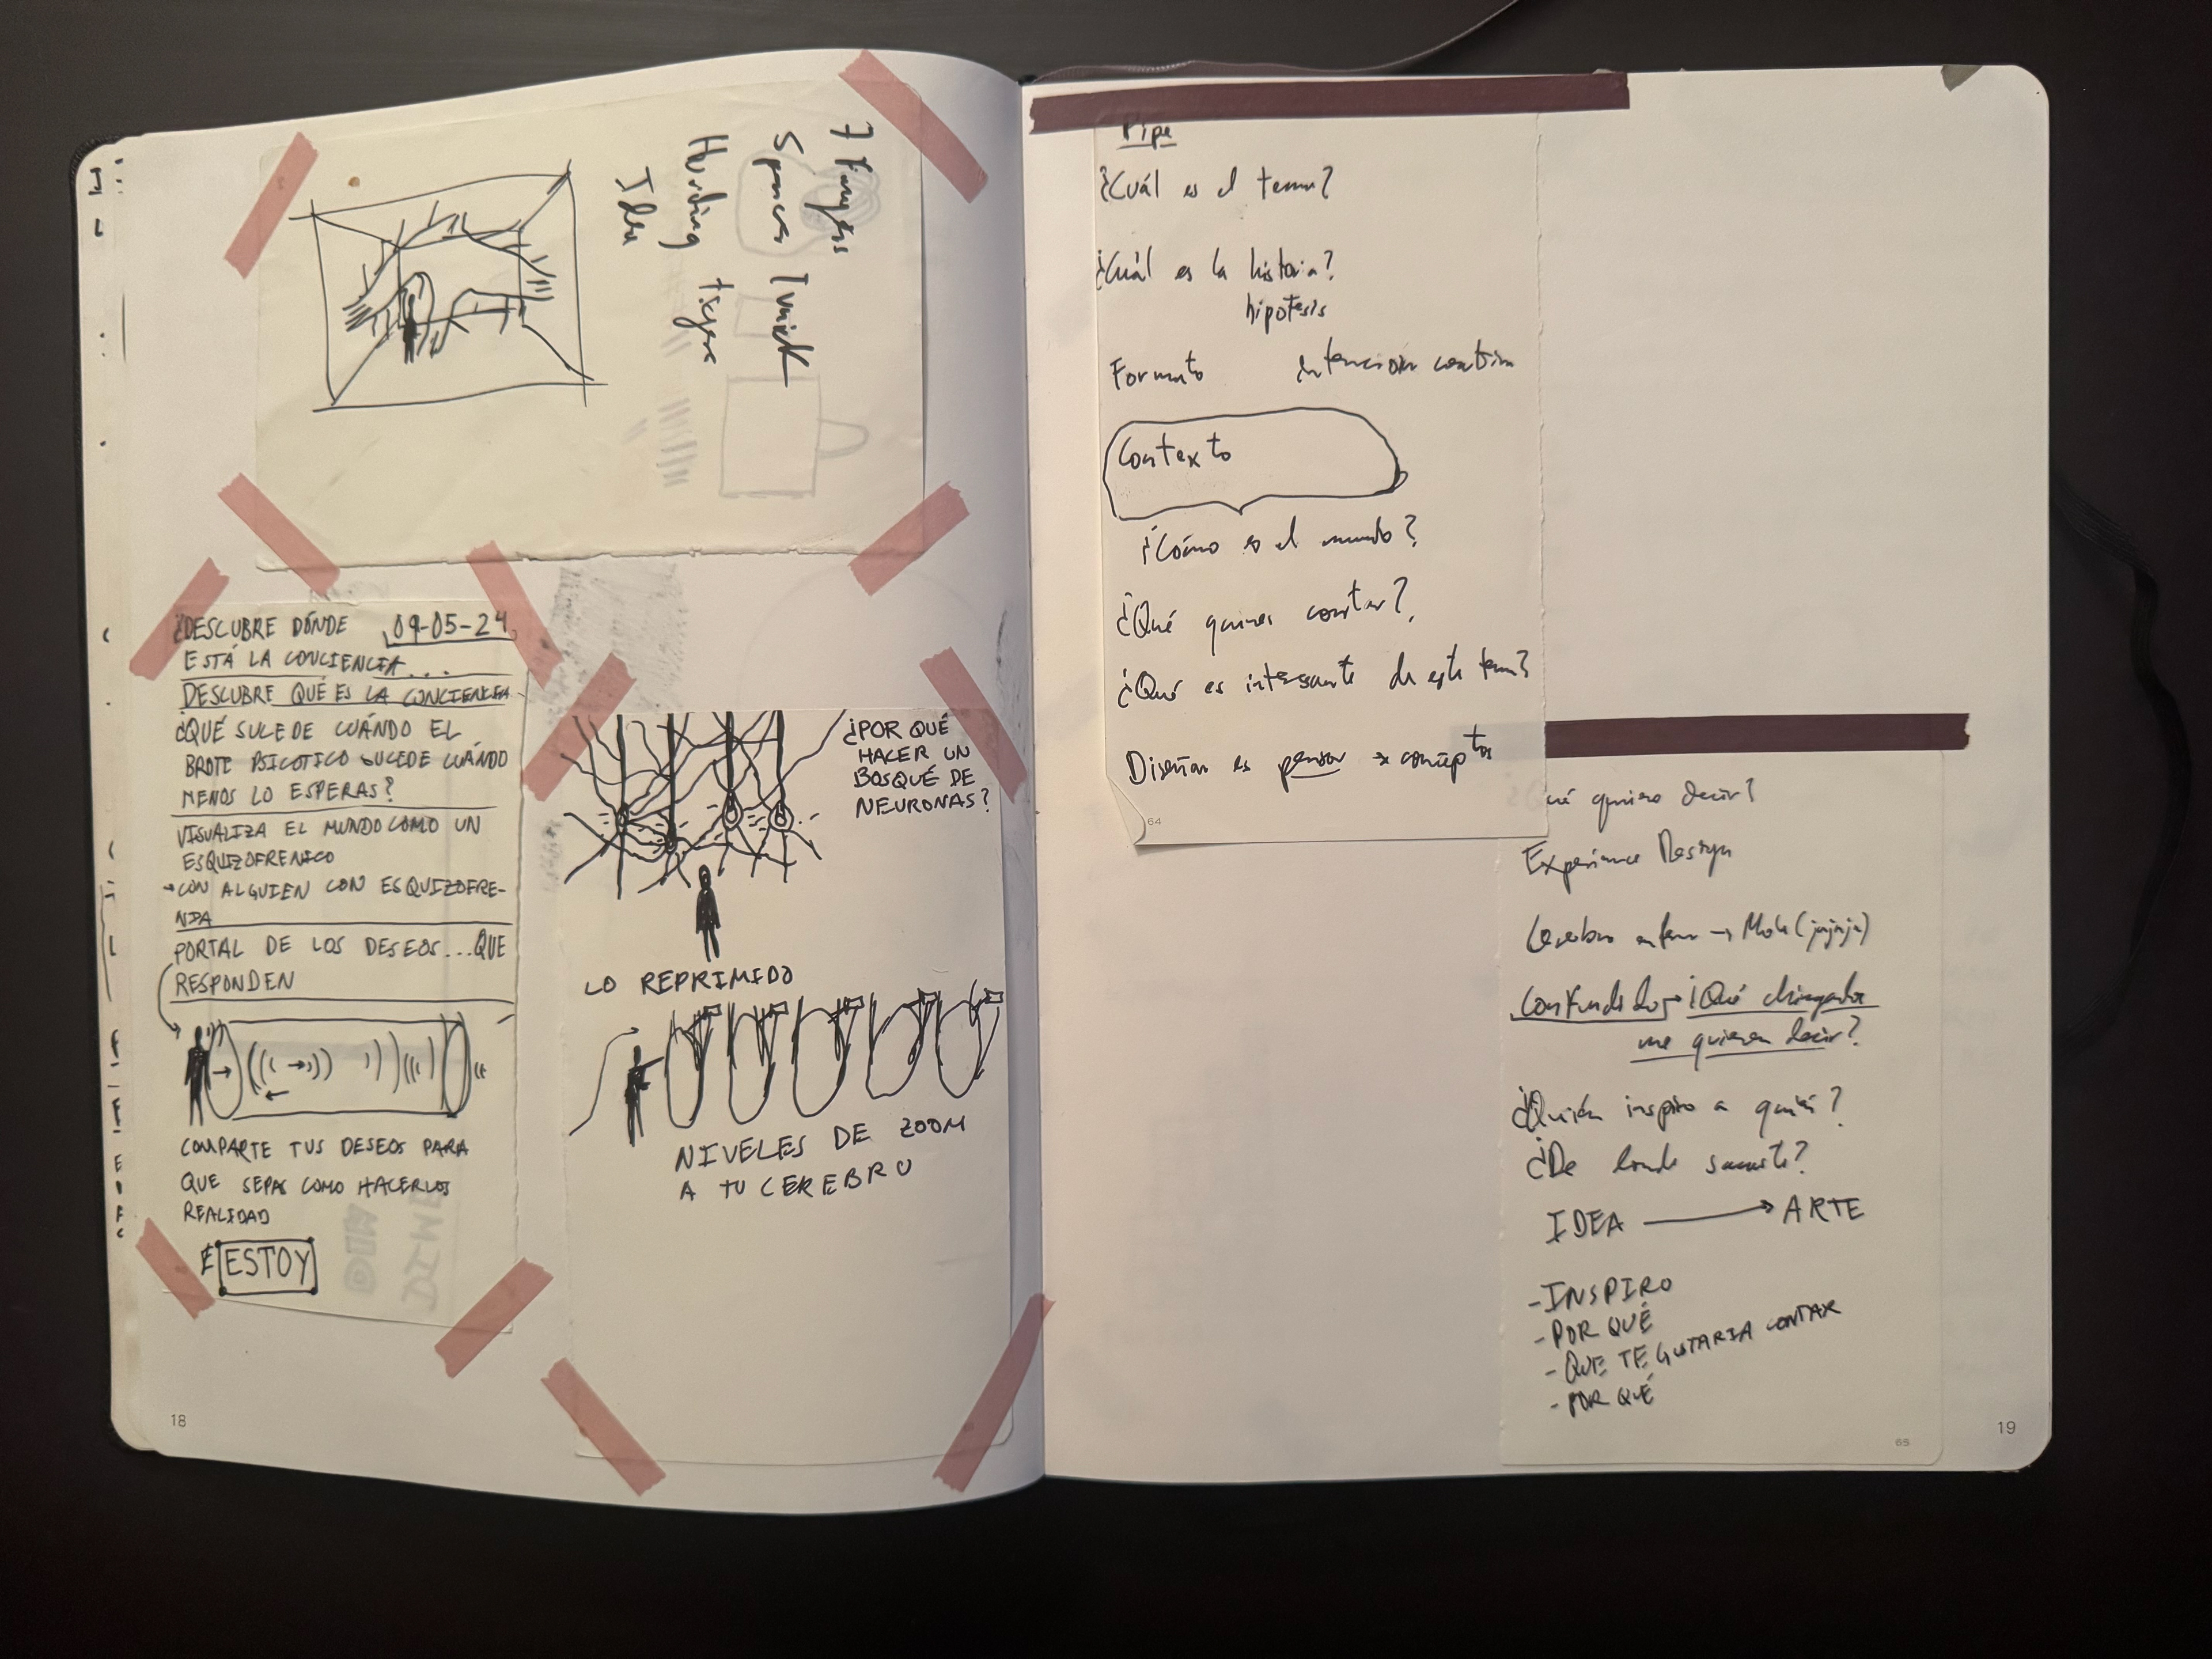 Spencer Tunick
Idea
¿DESCUBRE DÓNDE
09-05-24
ESTÁ LA CONCIENCIA...
DESCUBRE QUÉ ES LA CONCIENCIA
¿QUÉ SUCEDE CUÁNDO EL
BROTE PSICOTICO SUCEDE CUÁNDO
MENOS LO ESPERAS?
VISUALIZA EL MUNDO COMO UN
ESQUIZOFRENICO
→CON ALGUIEN CON ESQUIZOFRE-
NIA
PORTAL DE LOS DESEOS...QUE
RESPONDEN
COMPARTE TUS DESEOS PARA
QUE SEPAS COMO HACERLOS
REALIDAD
ESTOY
18
¿POR QUÉ
HACER UN
BOSQUÉ DE
NEURONAS?
LO REPRIMIDO
NIVELES DE ZOOM
A TU CEREBRO
Pipe
¿Cuál es el tema?
¿Cuál es la historia?
hipotesis
Formato
Contexto
¿Cómo es el mundo?
¿Qué quieres contar?
¿Qué es interesante de este tema?
Diseñar es pensar → conceptos
64
Qué quiero decir?
Experience Design
Confundido → ¿Qué chingados
me quieren decir?
¿Quién inspiro a quién?
¿De donde sacaste?
IDEA → ARTE
- INSPIRO
- POR QUÉ
- QUE TE GUSTARIA CONTAR
- POR QUÉ
65
19